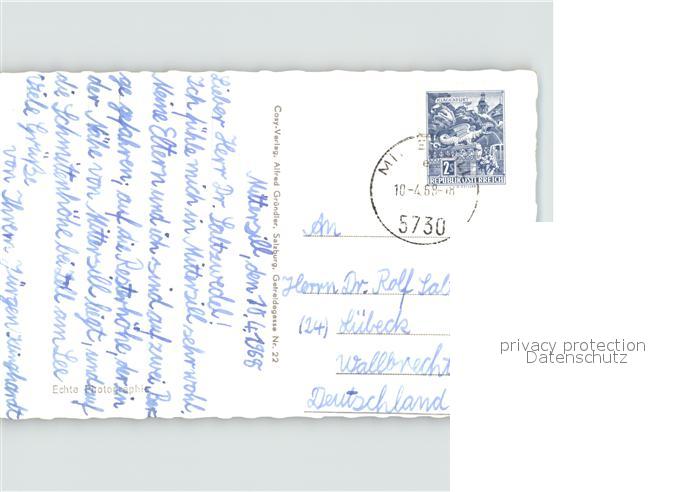 Mittersill, den 10.4.1968
Lieber Herr Dr. Saltzwedel!
Ich fühle mich in Mittersill sehr wohl.
Meine Eltern und ich sind auf zwei Ber-
ge gefahren; auf die Resterhöhe, die in
der Nähe von Mittersill liegt, und auf
die Schmittenhöhe bei Zell am See
Viele Grüße
von Ihrem Jürgen
Echte Photographie
Cosy-Verlag, Alfred Gründler, Salzburg, Getreidegasse Nr. 22
KLAGENFURT
2S
REPUBLIK ÖSTERREICH
MI
10-4.68-18
5730
An
Herrn Dr. Rolf Sal
(24) Lübeck
Wallbrecht
Deutschland
privacy protection
Datenschutz